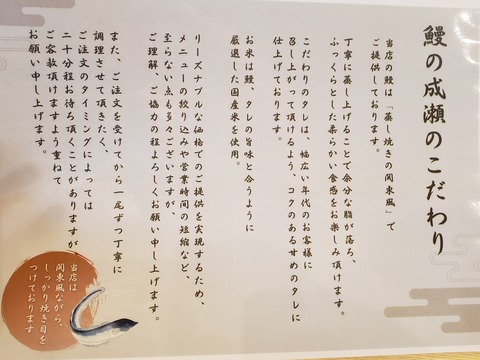 鰻の成瀬のこだわり
当店の鰻は「蒸し焼きの関東風」で
ご提供しております。
丁寧に蒸し上げることで余分な脂が落ち、
ふっくらとした柔らかい食感をお楽しみ頂けます。
こだわりのタレは、幅広い年代のお客様に
召し上がって頂けるよう、コクのある甘めのタレに
仕上げております。
お米は鰻、タレの旨味と合うように
厳選した国産米を使用。
リーズナブルな価格でのご提供を実現するため、
メニューの絞り込みや営業時間の短縮など、
至らない点も多々ございますが、
ご理解、ご協力の程よろしくお願い申し上げます。
また、ご注文を受けてから一尾ずつ丁寧に
調理させて頂きたく、
ご注文のタイミングによっては
二十分程お待ち頂くことがありますが、
ご容赦頂けますよう重ねて
お願い申し上げます。
当店は
関東風ながら、
しっかり焼き目を
つけております